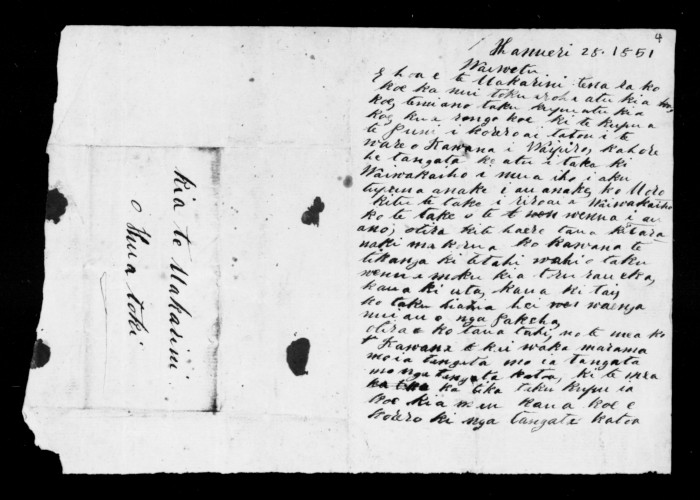 4
Hanueri 28. 1851
Waiwetu
E hoa e te Makarini tena ra ko
koe ka nui toku aroha atu kia koe,
koe, tenei ano taku kupu atu kia
koe, kua rongo koe ki te kupu a
te Guni i korero ai tatou i te
ware o Kawana i Waipiro, kahore
he tangata ke atu i taka ki
Waiwakaiho i mua iho i aku
tupuna anake i au anake, ko
kitu te take i riro ai a Waiwakaiho
ko te take o te wenua i au
ano, otira kite haere taua kitara
naki makorua ko kawana te
tikanga ki tetahi wahi o taku
wenua moku kia toru rau eka,
kaua ki uta, kaua ki tai,
ko taku hiahia hei waenga
nui au o nga Pakeha,
otira ko tana tahi no te mea ko
Kawana te kai waka marama
mo ia tangata mo ia tangata
mo nga tangata katoa, ki te mea
ka tika taku kupu ia
koe kia mau kaua koe e
korero ki nga tangata katoa
kia te Makarini
o Hua toki